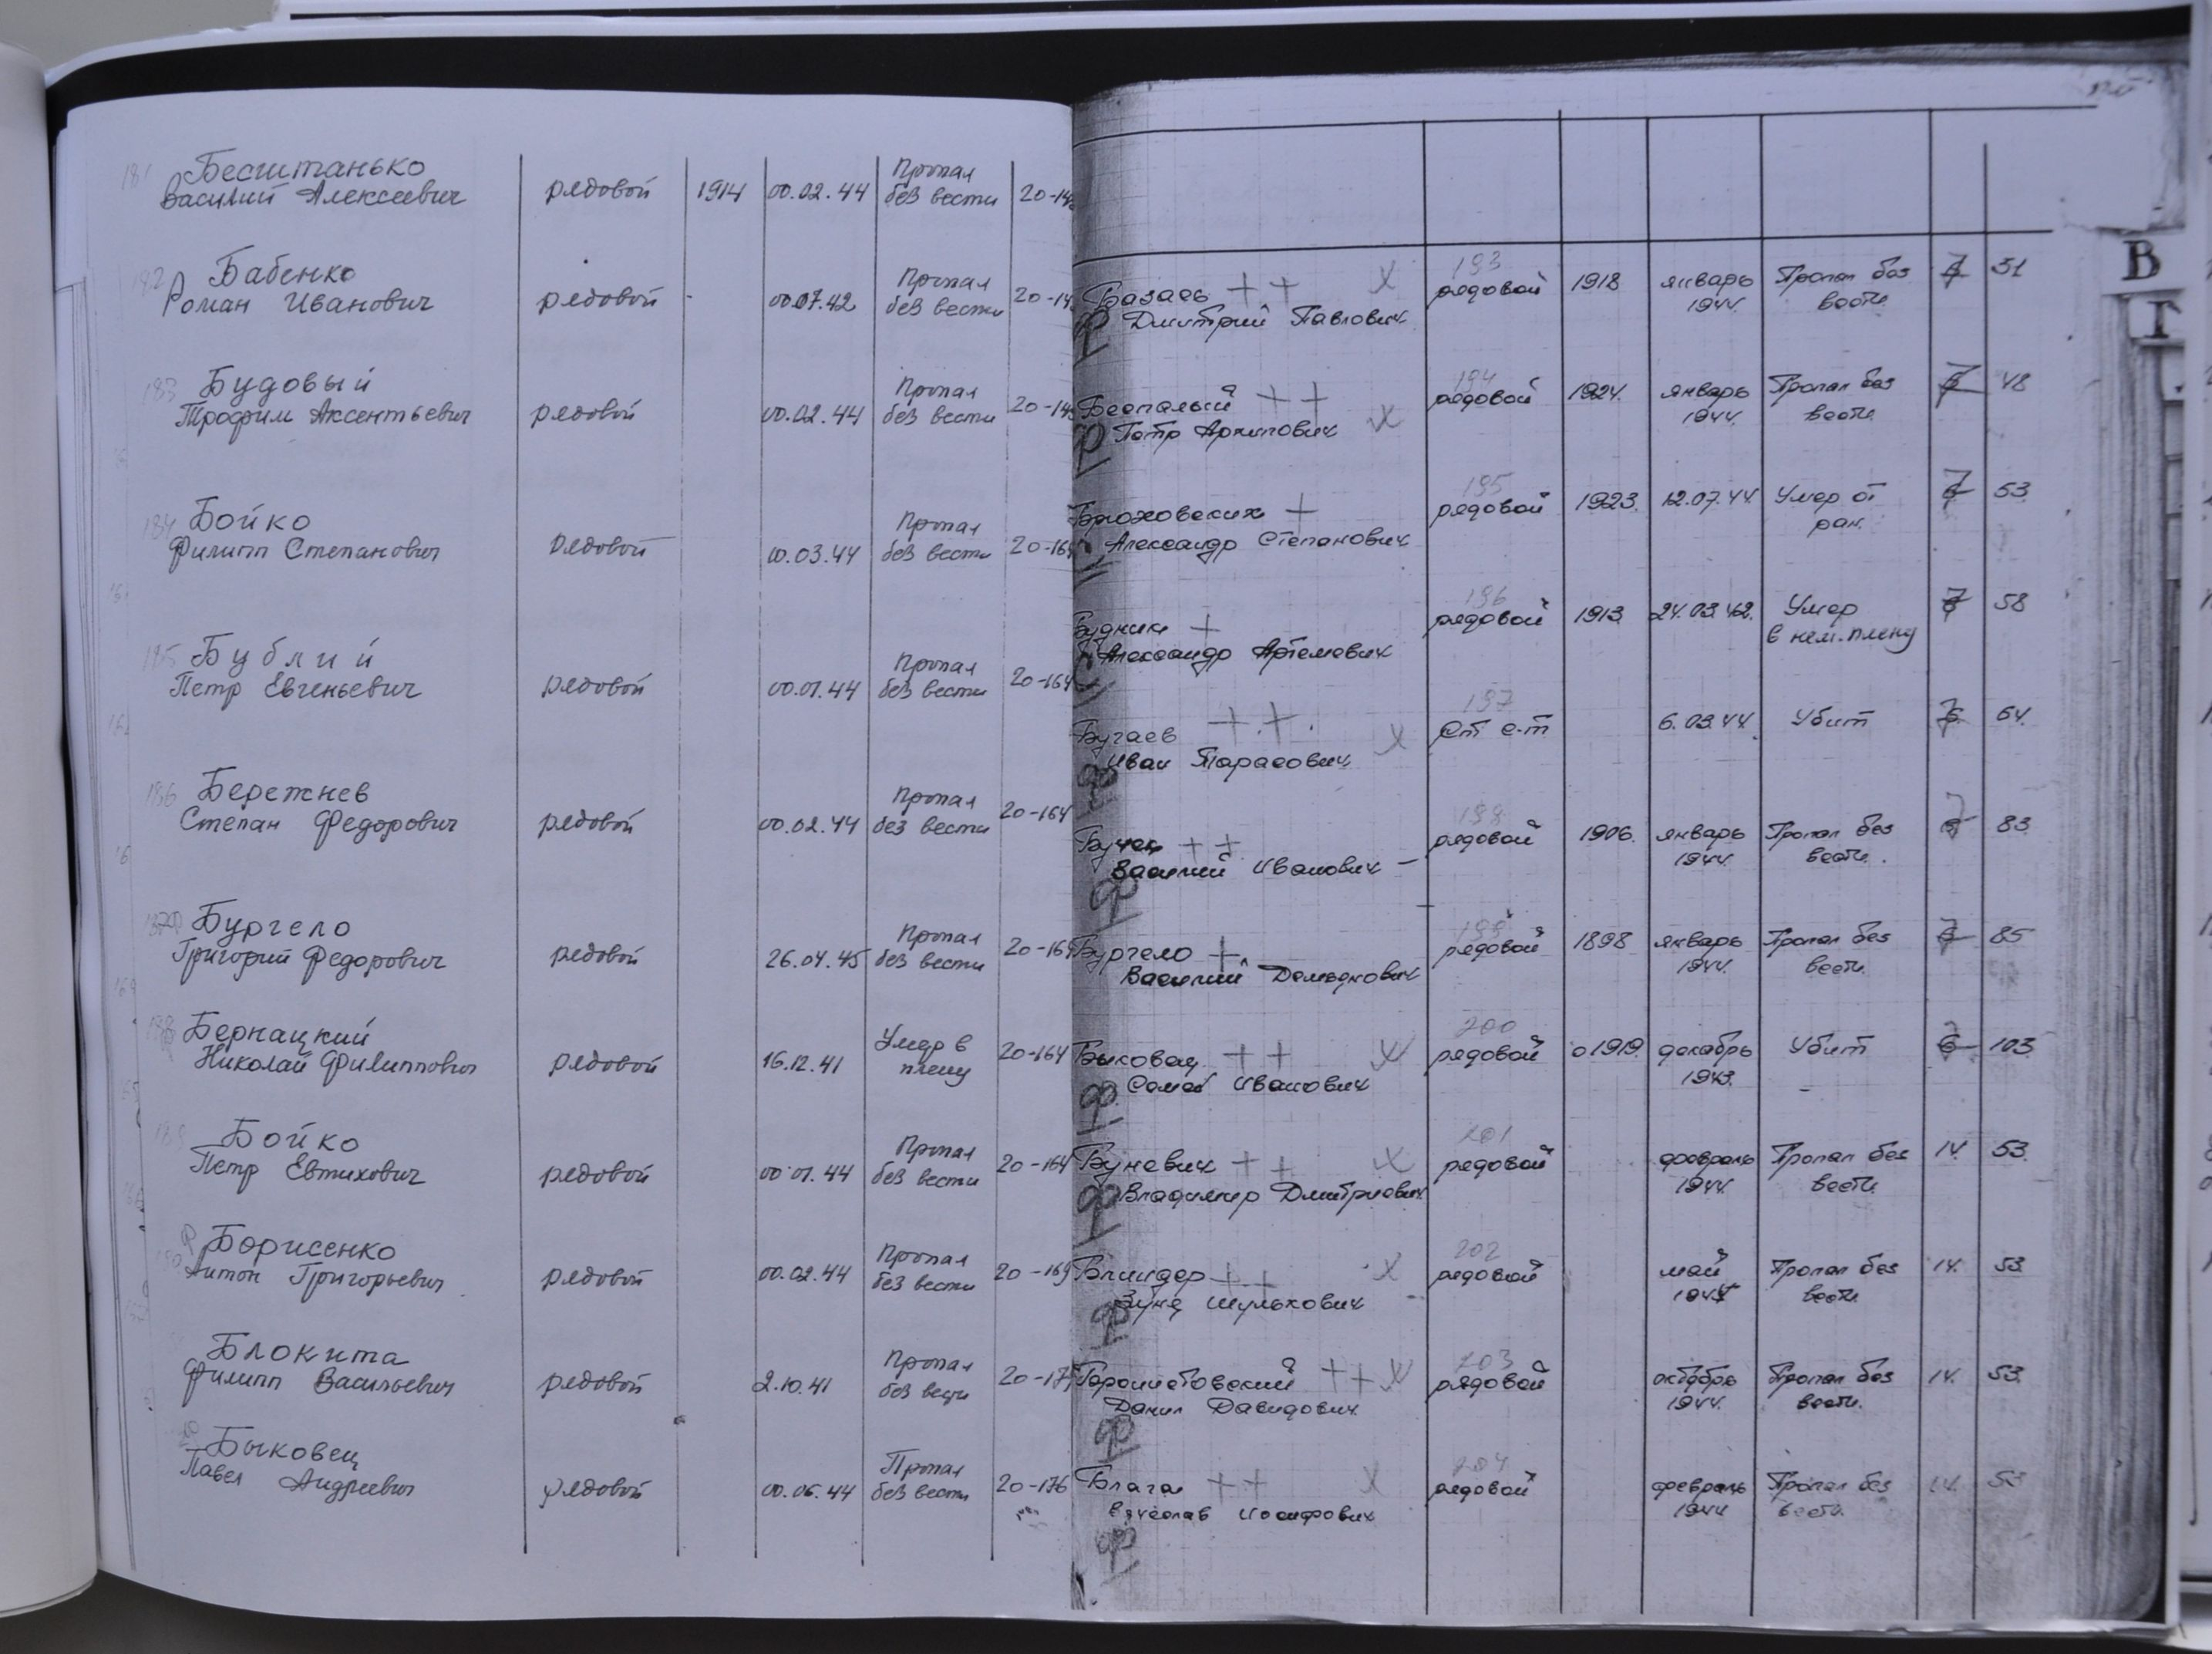 181 Бесштанько
Василий Алексеевич рядовой 1914 00.02.44 Пропал без вести 20-14
182 Бабенко
Роман Иванович рядовой - 00.07.42 Пропал без вести 20-14
183 Будовый
Трофим Аксентьевич рядовой 00.02.44 Пропал без вести 20-14
184 Бойко
Филипп Степанович рядовой 00.03.44 Пропал без вести 20-164
185 Бублий
Петр Евгеньевич рядовой 00.01.44 Пропал без вести 20-164
186 Бережнев
Степан Федорович рядовой 00.02.44 Пропал без вести 20-164
187 Бургело
Григорий Федорович рядовой 26.04.45 Пропал без вести 20-164
188 Бернацкий
Николай Филиппович рядовой 16.12.41 Умер в плену 20-164
189 Бойко
Петр Евтихович рядовой 00.01.44 Пропал без вести 20-164
Борисенко
Антон Григорьевич рядовой 00.02.44 Пропал без вести 20-164
Блокита
Филипп Васильевич рядовой 2.10.41 Пропал без вести 20-17
Быковец
Павел Андреевич рядовой 00.06.44 Пропал без вести 20-176
В
Г
Базась ++ X 193 рядовой 1918 январь Пропал без 7 51
Ф Дмитрий Павлович 1944. вести
Беспалый ++ X 194 рядовой 1924. январь Пропал без 7 48
Ф Петр Архипович 1944. вести
+ 195 рядовой 1923. 12.07.44 Умер от 7 53
Александр Степанович ран.
Будник + 196 рядовой 1913 24.03.42. Умер 7 58
Александр Артемович в нем. плену
Бугаев ++ X 197 ст с-т 6.03.44. Убит 7 64.
Ф Иван Тарасович
++ 198 рядовой 1906. январь Пропал без 7 83
Ф Василий Иванович – 1944. вести.
Бургело + 199 рядовой 1898 январь Пропал без 7 85
Василий Демьянович 1944. вести.
Быковец ++ X 200 рядовой 1919. декабрь Убит 103
Ф Иванович 1943.
Буневич ++ X 201 рядовой февраль Пропал без 14 53.
Ф Владимир Дмитриевич 1944. вести
Блиндер ++ X 202 рядовой май Пропал без 14. 53
Ф Зуня Шулькович вести
++ X 203 рядовой октябрь Пропал без 14. 53.
Ф Данил Давидович 1944. вести.
Блага ++ X 204 рядовой февраль Пропал без 14. 53
Ф Вячеслав Иосифович 1944 вести.